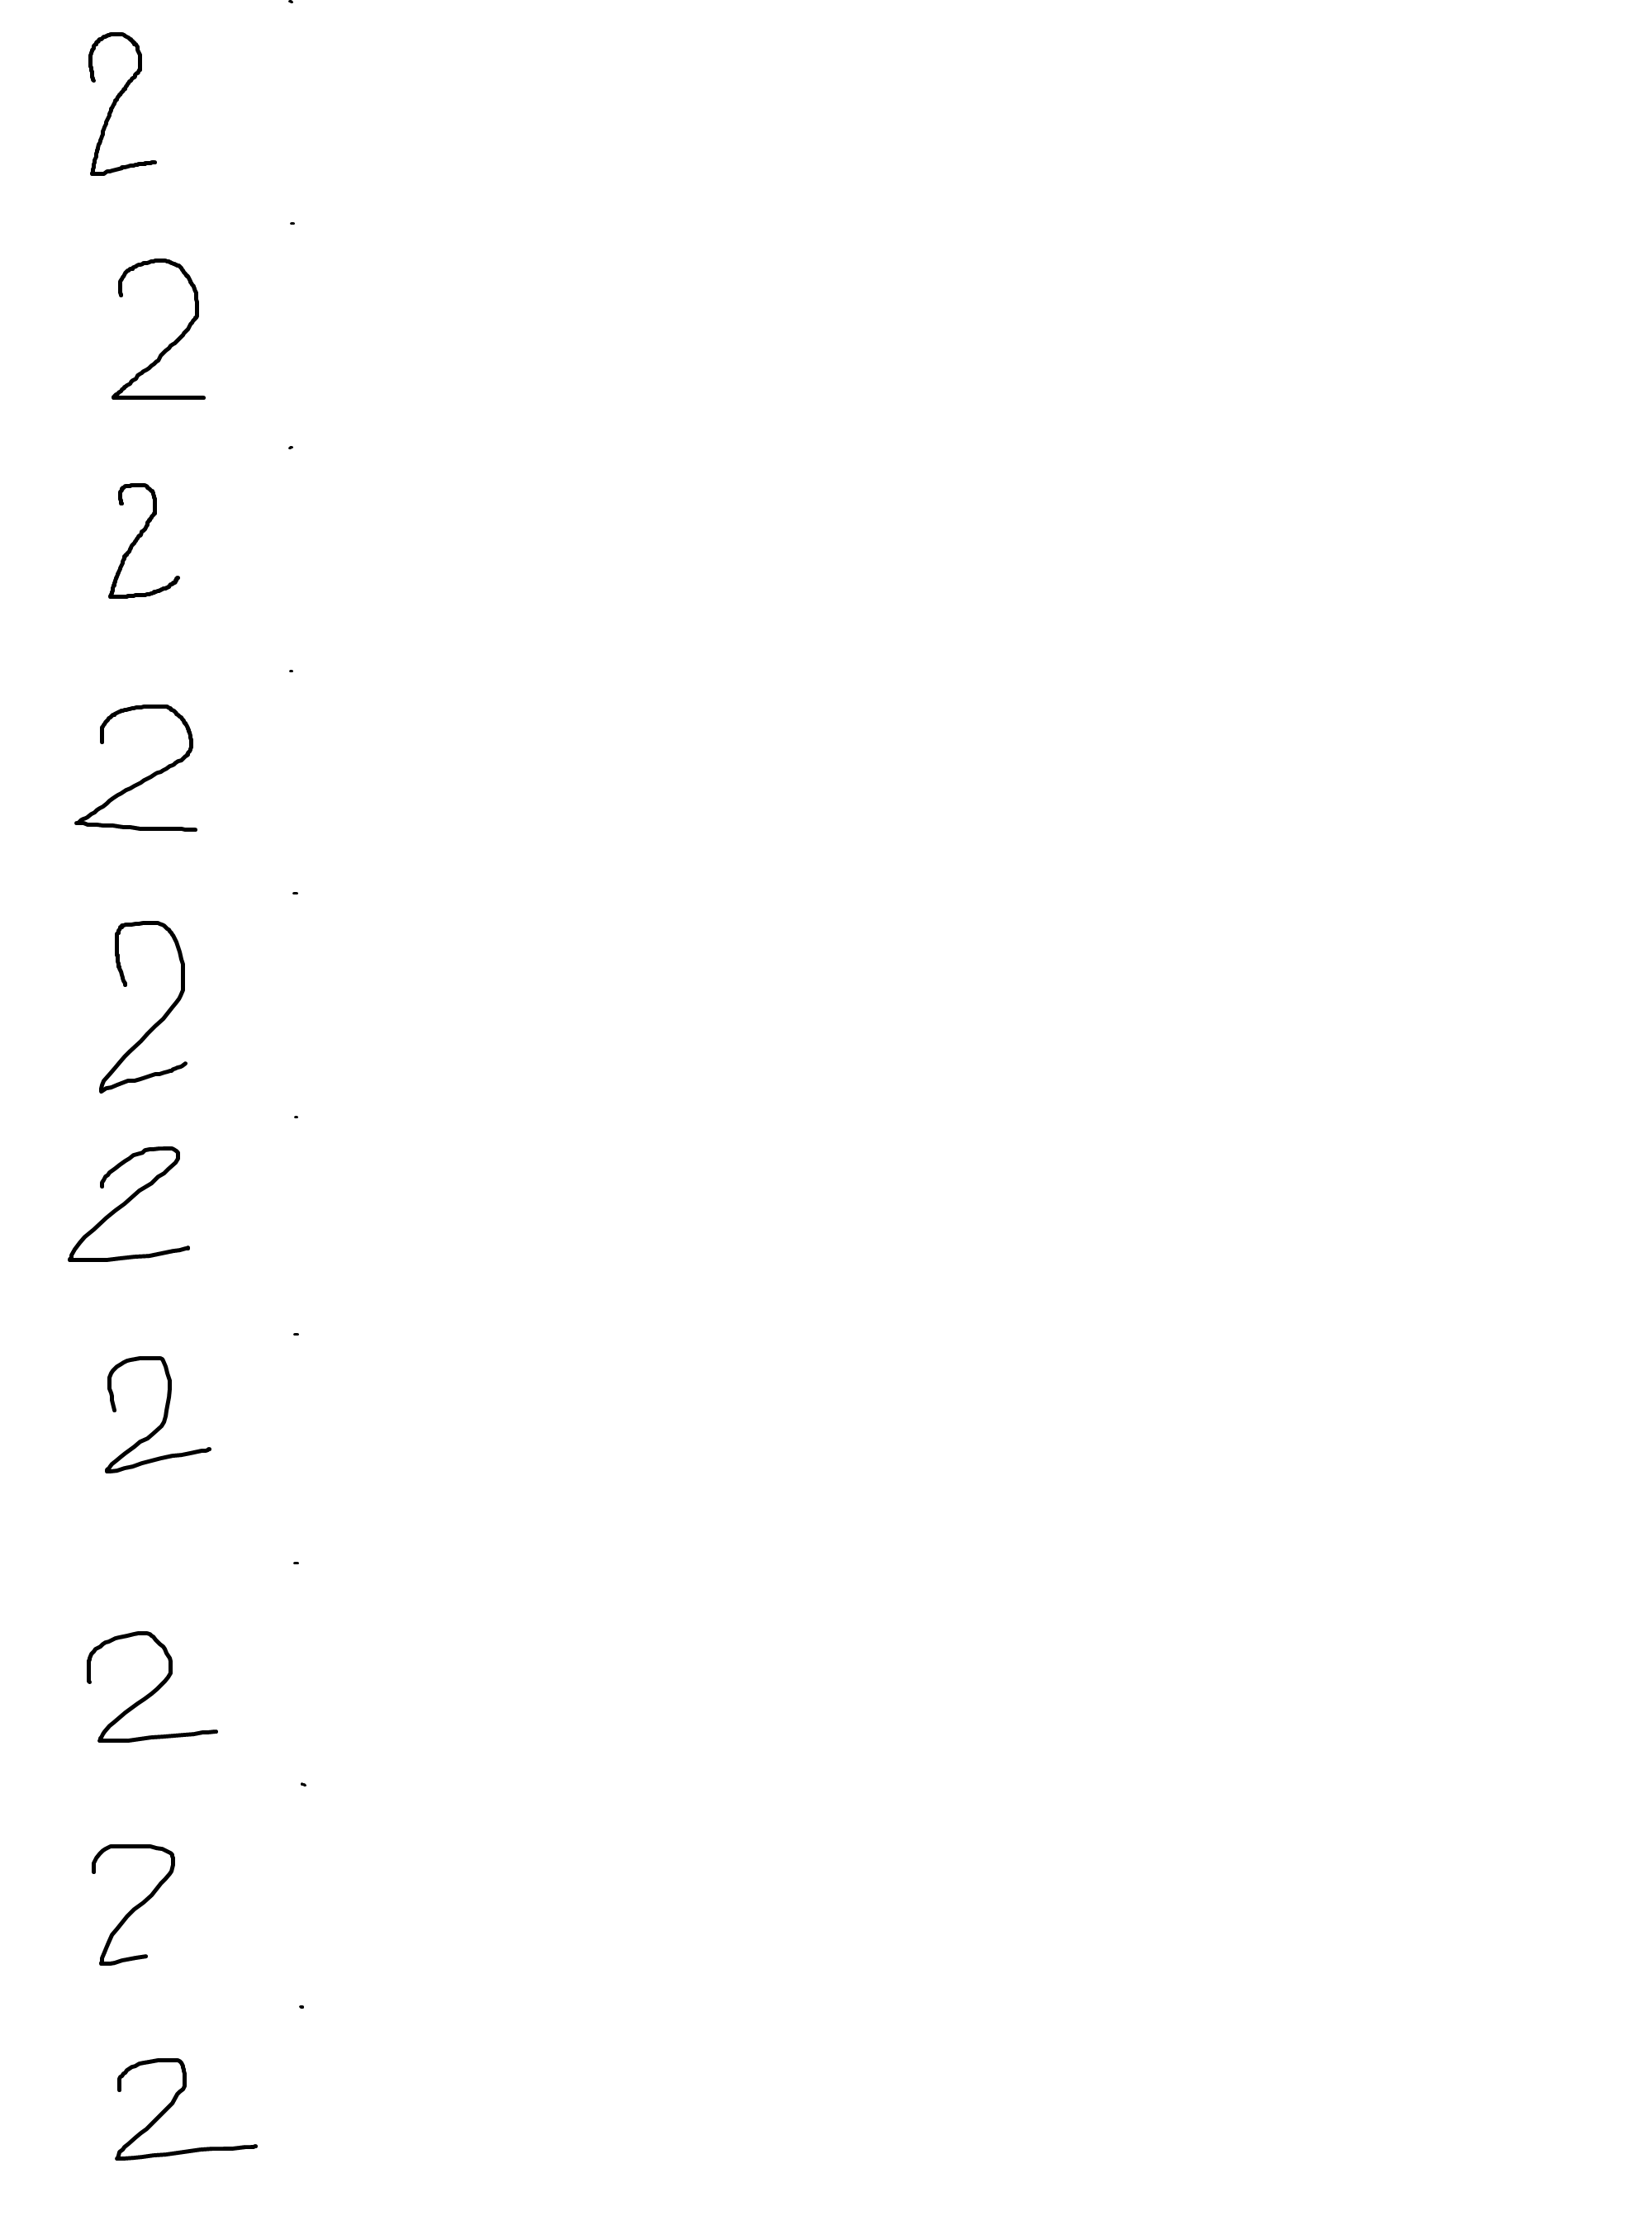 2
2
2
2
2
2
2
2
2
2